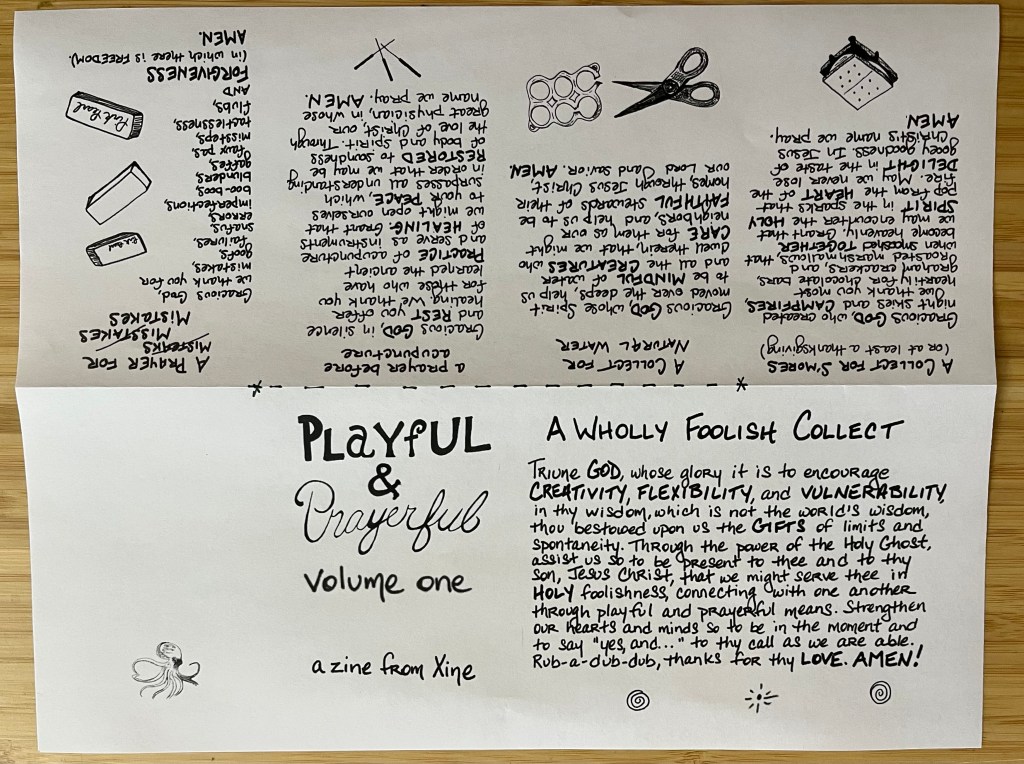 PLAYFUL
&
Prayerful
volume one
a zine from Xine
A WHOLLY FOOLISH COLLECT
Triune GOD, whose glory it is to encourage
CREATIVITY, FLEXIBILITY, and VULNERABILITY,
in thy wisdom, which is not the world's wisdom,
thou bestowed upon us the GIFTS of limits and
spontaneity. Through the power of the Holy Ghost,
assist us so to be present to thee and to thy
son, Jesus Christ, that we might serve thee in
HOLY foolishness, connecting with one another
through playful and prayerful means. Strengthen
our hearts and minds so to be in the moment and
to say "yes, and..." to thy call as we are able.
Rub-a-dub-dub, thanks for thy LOVE. AMEN!
A COLLECT FOR S'MORES
(or at least a thanksgiving)
Gracious GOD, who created
night skies and CAMPFIRES,
we thank you most
heartily for chocolate bars,
graham crackers, and
roasted marshmallows, that
when smooshed TOGETHER
become heavenly. Grant that
we may encounter the HOLY
SPIRIT in the sparks that
pop from the HEART of the
fire. May we never lose
DELIGHT in the taste of
gooey goodness. In Jesus
Christ's name we pray.
AMEN.
A COLLECT FOR
NATURAL WATER
Gracious GOD, whose Spirit
moved over the deeps, help us
to be MINDFUL of water
and all the CREATURES who
dwell therein, that we might
CARE for them as our
neighbors, and help us to be
FAITHFUL stewards of their
homes, through Jesus Christ,
our Lord and savior. AMEN.
a prayer before
acupuncture
Gracious GOD, in silence
and REST you offer
healing. We thank you
for those who have
learned the ancient
PRACTICE of acupuncture
and serve as instruments
of HEALING. Grant that
we might open ourselves
to your PEACE, which
surpasses all understanding
in order that we may be
RESTORED to soundness
of body and spirit. Through
the love of Christ, our
great physician, in whose
name we pray. AMEN.
A PRAYER FOR
MISTEAKS
MISSTAKES
MISTAKES
Gracious God,
we thank you for
mistakes,
goofs,
failures,
snafus,
errors,
imperfections,
boo-boos,
blunders,
gaffes,
faux pas,
missteps,
tactlessness,
flubs,
AND
FORGIVENESS
(in which there is FREEDOM).
AMEN.
Pink Pearl
Pink Pearl